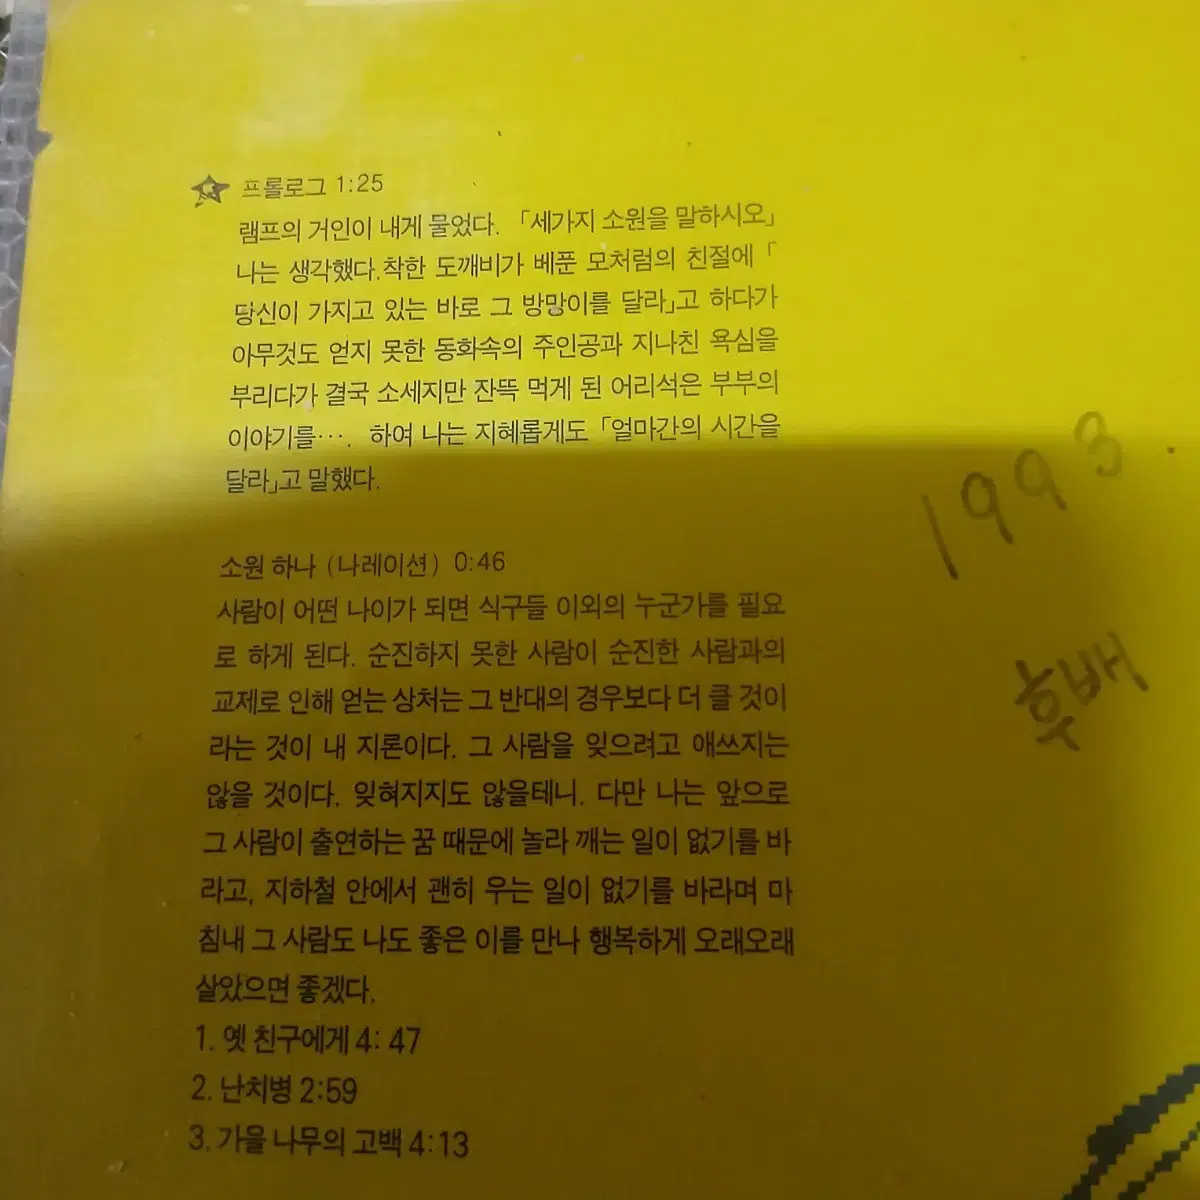 프롤로그 1:25
램프의 거인이 내게 물었다. 「세가지 소원을 말하시오」
나는 생각했다.착한 도깨비가 베푼 모처럼의 친절에 「
당신이 가지고 있는 바로 그 방망이를 달라」고 하다가
아무것도 얻지 못한 동화속의 주인공과 지나친 욕심을
부리다가 결국 소세지만 잔뜩 먹게 된 어리석은 부부의
이야기를···. 하여 나는 지혜롭게도 「얼마간의 시간을
달라」고 말했다.
소원 하나 (나레이션) 0:46
사람이 어떤 나이가 되면 식구들 이외의 누군가를 필요
로 하게 된다. 순진하지 못한 사람이 순진한 사람과의
교제로 인해 얻는 상처는 그 반대의 경우보다 더 클 것이
라는 것이 내 지론이다. 그 사람을 잊으려고 애쓰지는
않을 것이다. 잊혀지지도 않을테니. 다만 나는 앞으로
그 사람이 출연하는 꿈 때문에 놀라 깨는 일이 없기를 바
라고, 지하철 안에서 괜히 우는 일이 없기를 바라며 마
침내 그 사람도 나도 좋은 이를 만나 행복하게 오래오래
살았으면 좋겠다.
1. 옛 친구에게 4: 47
2. 난치병 2:59
3. 가을 나무의 고백 4:13
1993.
후배